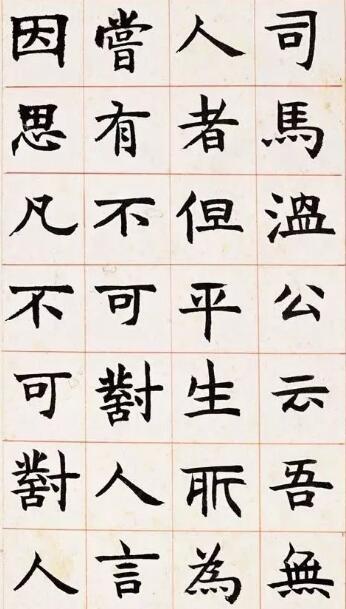 司馬溫公云吾無
人者但平生所為
嘗有不可對人言
因思凡不可對人